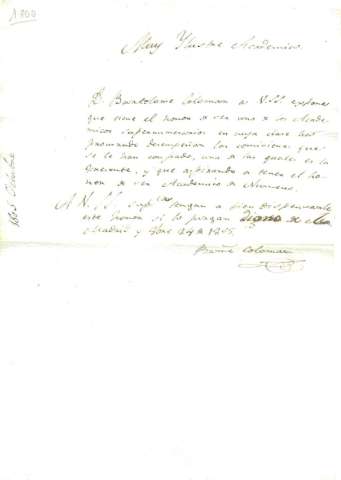 1800
Muy Ylustre Academico
D. Bartolome Coloman a V.SS. expone
que tiene el honor de ser uno de los Acade-
micos supernumerarios en cuya clase ha
procurado desempeñar las comisiones que
se le han confiado, una de las quales es la
presente, y que aspirando a tener el ho-
nor de ser Academico de Numero.
A V.SS. sup.ca tengan a bien dispensarle
este honor si lo juzgan digno de
Madrid y 24 de
Bmé Coloman